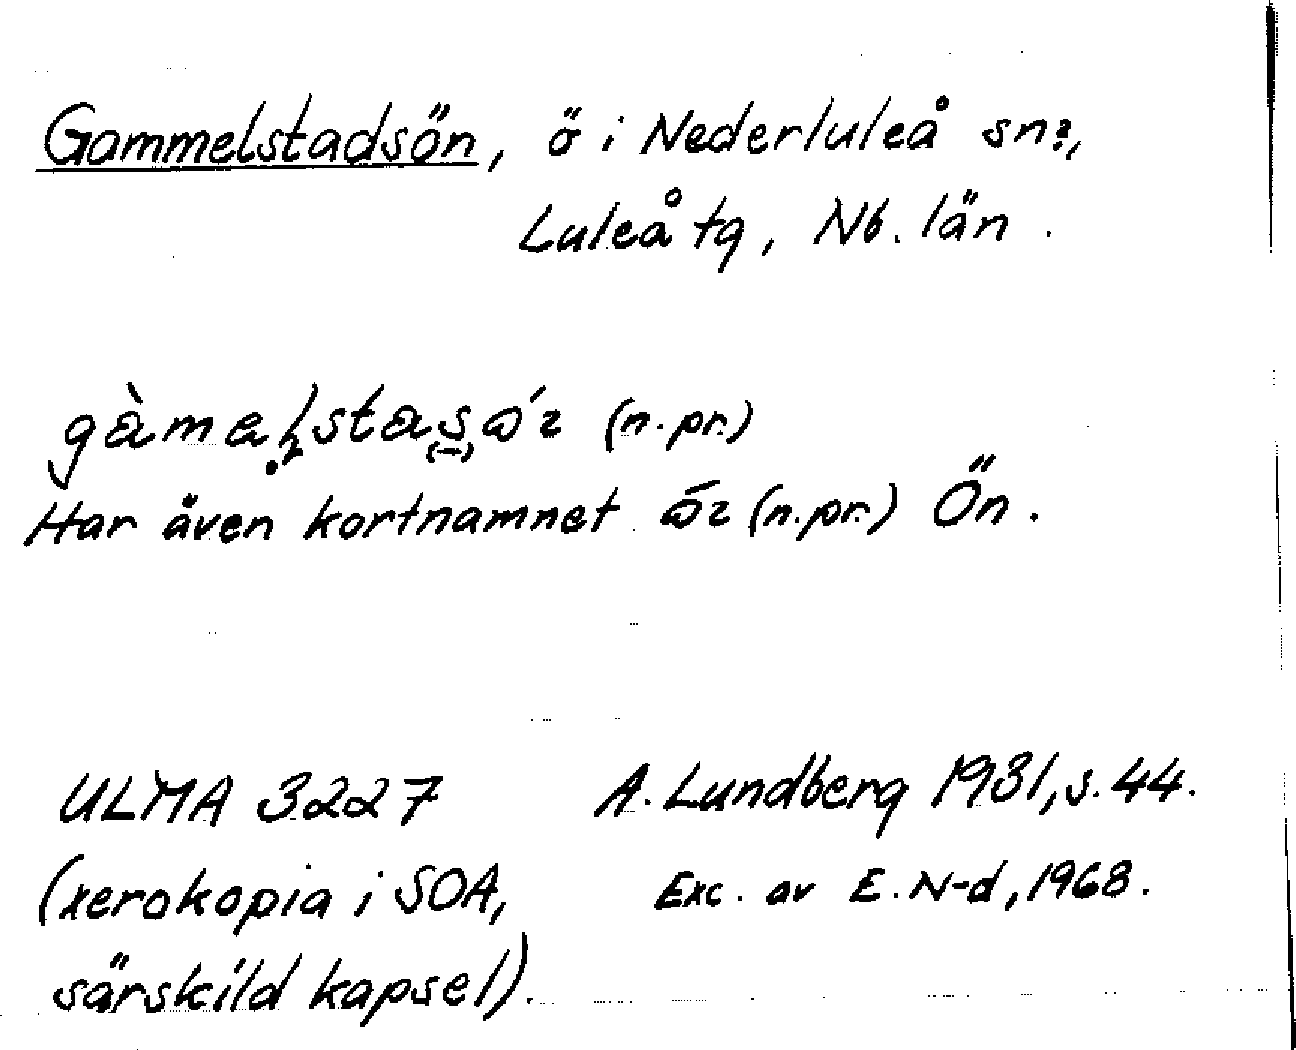 Gammelstadsön, ö i Nederluleå sn?,
Luleå tg, Nb. län.
(n.pr.)
Har även kortnamnet (n.pr.) Ön.
ULMA 3227 A. Lundberg 1931, s. 44.
(xerokopia i SOA, Exc. av E. N-d, 1968.
särskild kapsel).